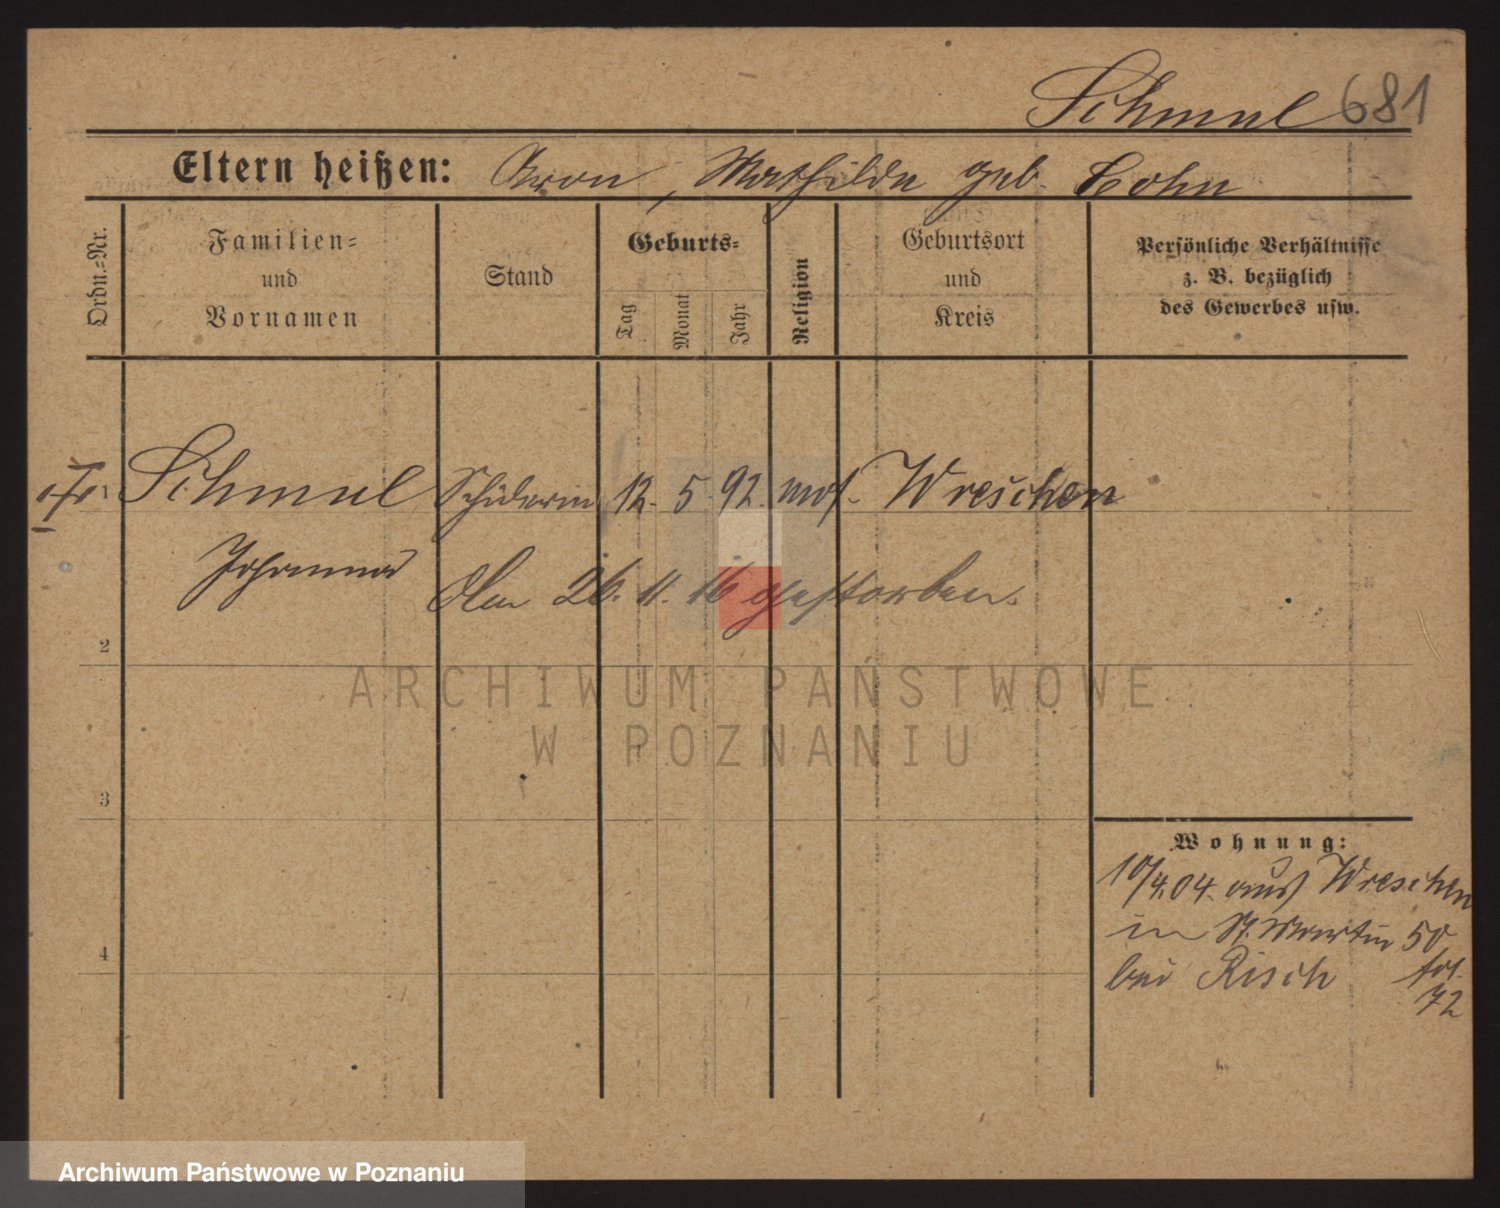 Schmul 681
Eltern heißen: Aron, Mathilde geb. Cohn
Ordn.-Nr.
Familien-
und
Vornamen
Stand
Geburts-
Tag
Monat
Jahr
Religion
Geburtsort
und
Kreis
Persönliche Verhältnisse
z. B. bezüglich
des Gewerbes usw.
1 Schmul Schülerin 12. 5. 92. mos. Wreschen
Johanna
Am 26. 11. 16 gestorben.
2
3
4
ARCHIWUM PAŃSTWOWE
W POZNANIU
Wohnung:
10/4.04. aus Wreschen
in St. Martin 50
bei Risch
72
Archiwum Państwowe w Poznaniu